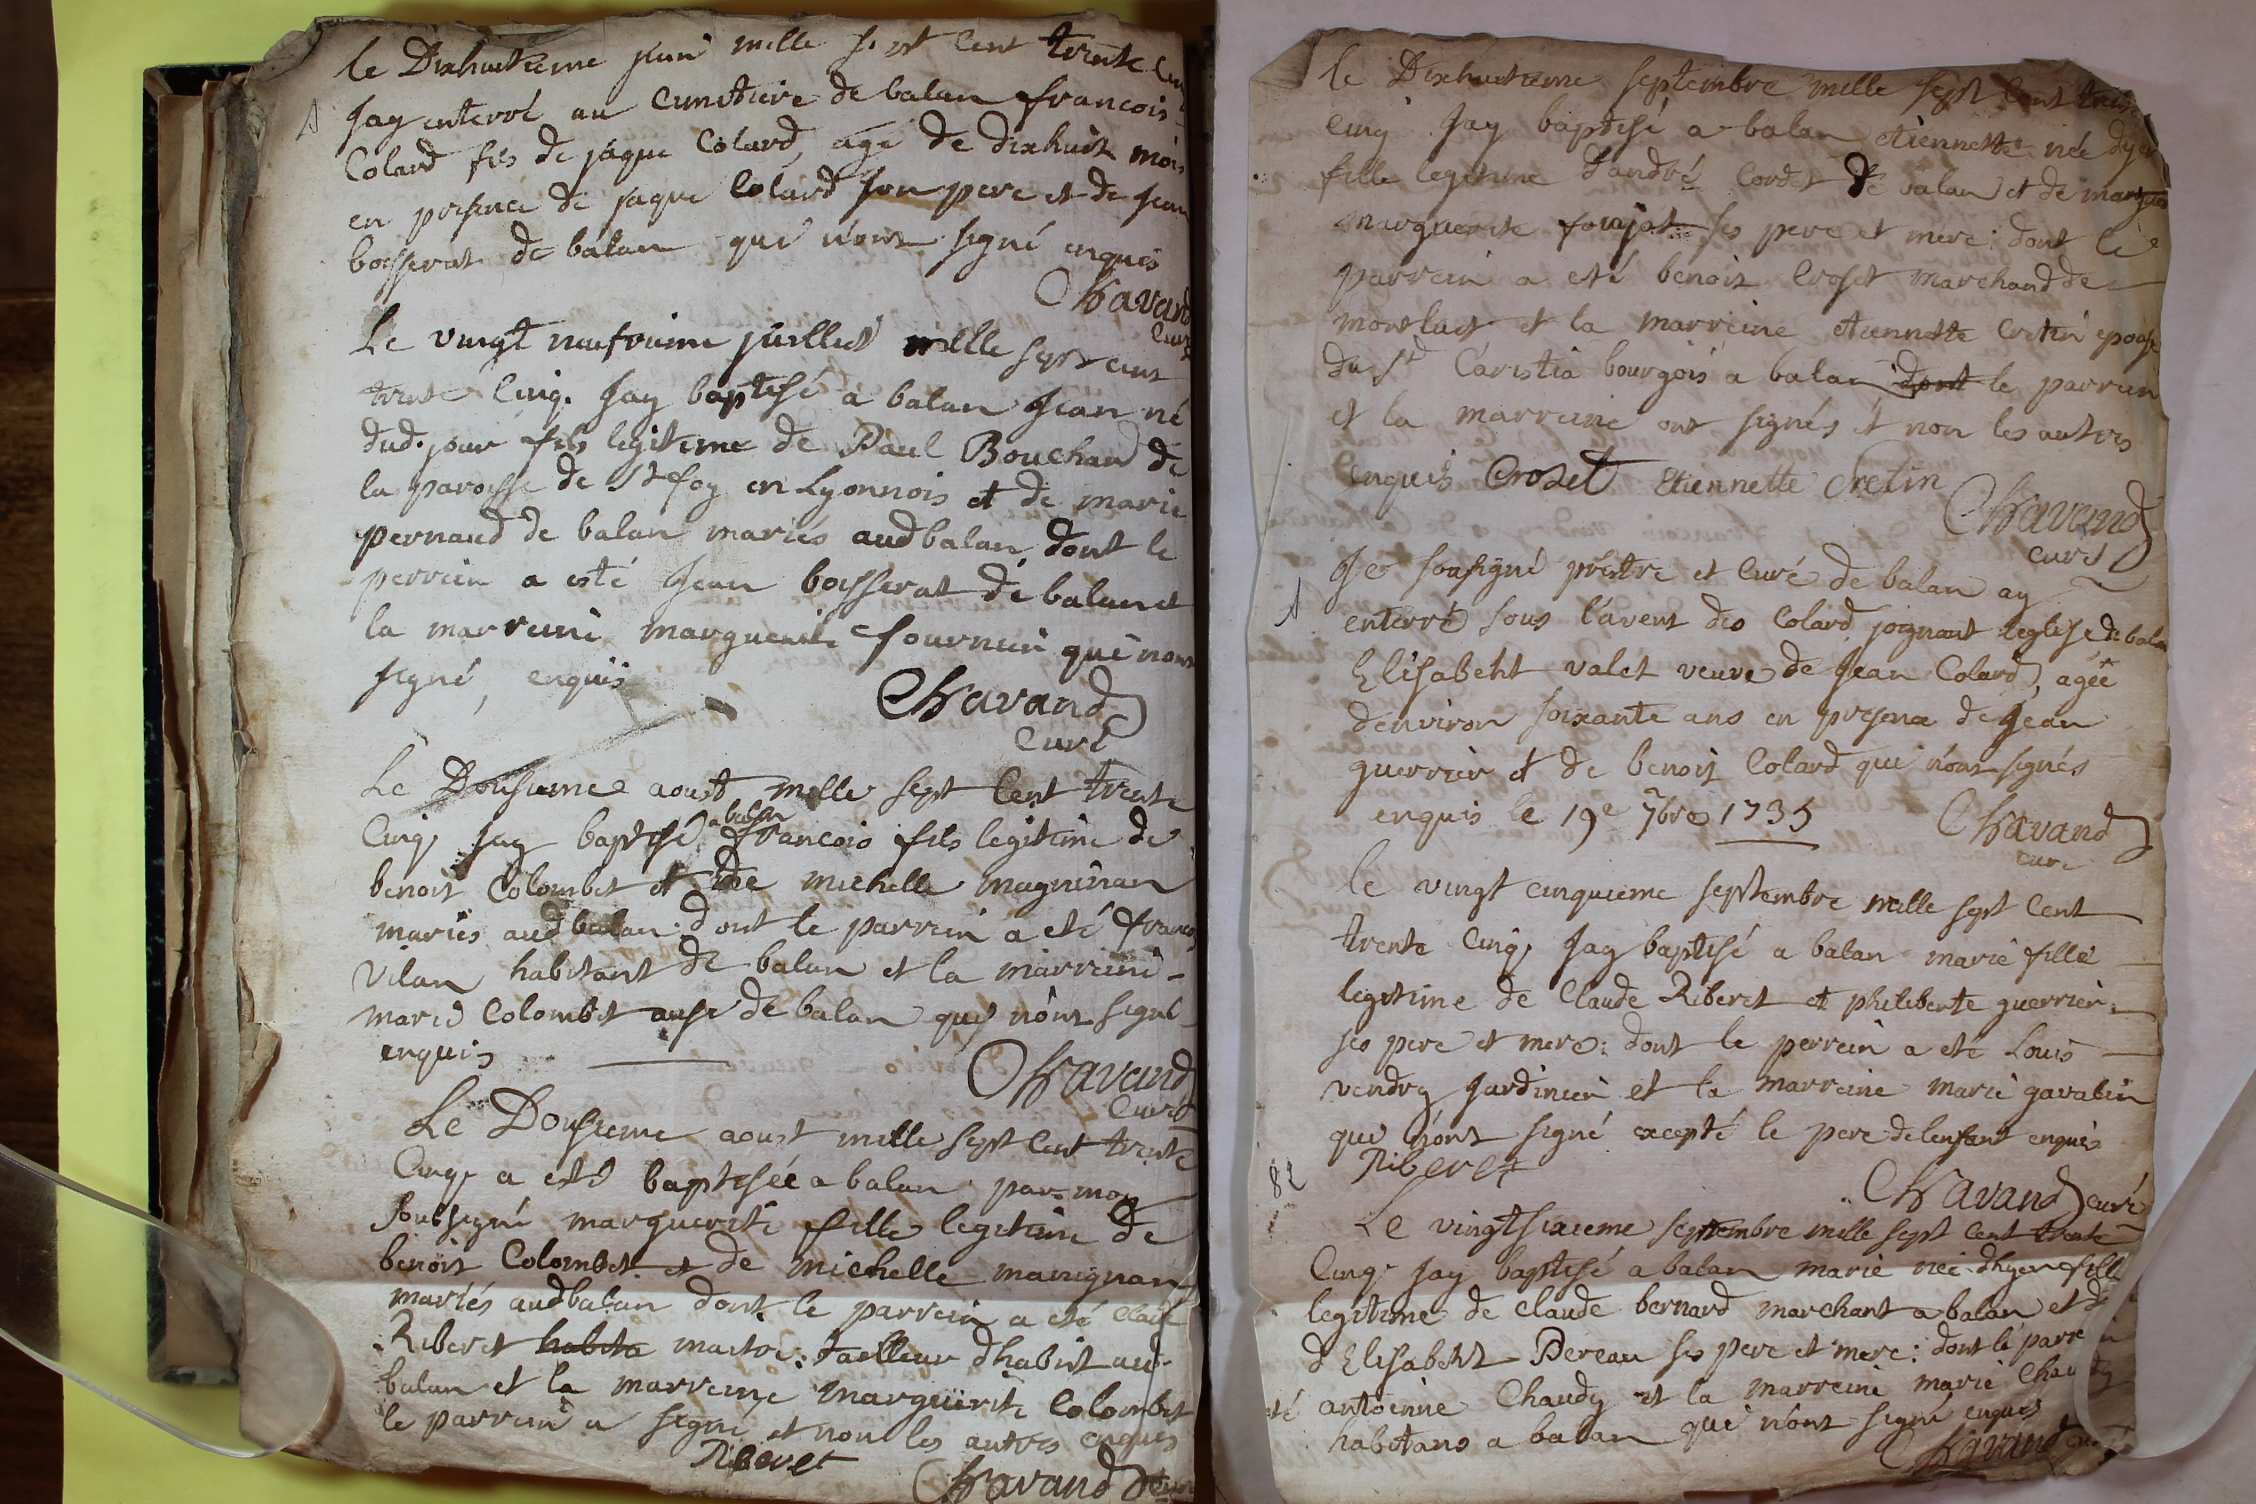 le Dixhuitieme juin mille sept cent trente cin
A
Jay enterré au cimitiere de balan francois
Colard fils de jaque Colard, agé de dixhuit mois
en presence de jaque Colard son pere et de jean
bosserat de balan qui n'ont signé enquis
Chavand
curé
Le vingt neufvieme juillet mille sept cent
trente cinq. Jay baptisé a balan Jean né
dud. jour fils legitime de Paul Bouchard de
la paroisse de St foy en Lyonnois et de marie
pernaud de balan mariés aud balan, dont le
perrein a esté Jean bosserat de balan et
la marreine marguerite fournier qui n'ont
signé, enquis
Chavand
Curé
Le Dousieme aoust mille sept Cent trente
a balan
Cinq, Jay baptisé francois fils legitime de
benoit Colombet et de michelle magninan
mariés aud balan. dont le parrein a eté francois
vilan habitant de balan et la marreine
marie Colombet aussi de balan qui n'ont signé
enquis
Chavand
Curé
Le Dousieme aoust mille sept cent trente
Cinq, a eté baptisée a balan par moy
Soubsigné marguerite fille legitime de
benoit Colombet et de michelle manignan
mariés aud balan dont le parrein a eté claude
Riberet habita maitre tailleur d'habit aud.
balan et la marreine marguerite Colombet
le parrein a signé et non les autres enquis
Riberet
Chavand curé
le Dixhuitieme septembre mille sept Cent trente
cinq Jay baptisé a balan etiennette née dyer
fille legitime d'andré Cordet de balan et de margue
marguerite foujat ses pere et mere: dont le
parrein a eté benoit Croset marchand de
montluet et la marreine etiennette Cretin epouse
du Sr Caristia bourgois a balan dont le parrein
et la marreine ont signés et non les autres
Enquis Croset Etiennette Cretin
Chavand
curé
Je sousigné prestre et Curé de balan ay
A
enterré sous l'avent des Colard joignant leglise de balan
Elisabeht valet veuve de Jean Colard, agée
denviron soixante ans en presence de Jean
guerrier et de benoit Colard qui n'ont signés
enquis le 19e 7bre 1735
Chavand
curé
le vingt cinquieme septembre mille sept Cent
trente Cinq, Jay baptisé a balan marie fille
legitime de Claude Riberet et philiberte guerrier
ses pere et mere: dont le perrein a eté Louis
vendry Jardinier et la marreine marie gavabin
qui n'ont signé excepté le pere de lenfant enquis
Riberet
Chavand curé
Le vingtsixieme septembre mille sept cent trente
Cinq. Jay baptisé a balan marie née dhyer fille
legitime de claude bernard marchant a balan et d
d'Elisabeht Pereau ses pere et mere: dont le parrein
eté antoinne Chaudy et la marreine marie Chaudy
habitans a balan qui n'ont signé enquis
Chavand curé